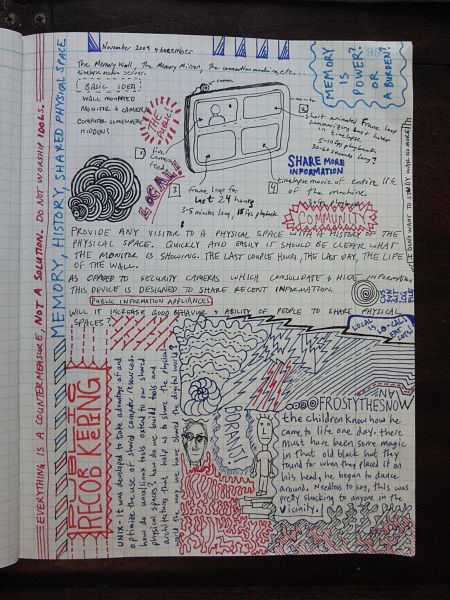 November 2009 & DECEMBER
The Memory Wall, The Memory Mirror, the connection machine, etc...
timelapse media server.
BASIC IDEA
WALL MOUNTED
MONITOR & CAMERA
COMPUTER SOMEWHERE
HIDDEN?
camera
monitor
THE PUBLIC
LOCAL!
1 live
camera
feed
2
short animated frame loop
summarizing last 4 hours
in timelapse
3
frame loop for
last 24 hours
3-5 minutes long, fps playback
4
timelapse movie of entire life
of the machine.
SHARE MORE
INFORMATION
COMMUNITY
MEMORY
IS
POWER?
OR
A BURDEN?
I DON'T WANT TO STUDY WAR NO MORE
PROVIDE ANY VISITOR TO A PHYSICAL SPACE WITH HISTORY OF THE
PHYSICAL SPACE. QUICKLY AND EASILY IT SHOULD BE CLEAR WHAT
THE MONITOR IS SHOWING. THE LAST COUPLE HOURS, THE LAST DAY, THE LIFE
OF THE WALL.
AS OPPOSED TO SECURITY CAMERAS WHICH CONSOLIDATE & HIDE INFORMATION
THIS DEVICE IS DESIGNED TO SHARE RECENT INFORMATION.
PUBLIC INFORMATION APPLIANCES
WILL IT INCREASE GOOD BEHAVIOR & ABILITY OF PEOPLE TO SHARE PHYSICAL
SPACES?
LOCAL IS
LO-CALLY
EVERYTHING IS A COUNTERMEASURE, NOT A SOLUTION. DO NOT WORSHIP IDOLS.
MEMORY, HISTORY, SHARED PHYSICAL SPACE
PUBLIC
RECORD KEEPING
UNIX - it was developed to take advantage of and
optimize the use of shared computer resources.
how do unix/linux tools extend to the shared
physical spaces? how do we build tools and
architectures that help us to share the physical
world the way we have shared the digital world?
FROSTYTHESNOWMAN
the children know how he
came to life one day. there
must have been some magic
in that old black hat they
found for when they placed it on
his head, he began to dance
around. Needless to say, this was
pretty shocking to anyone in the
vicinity.